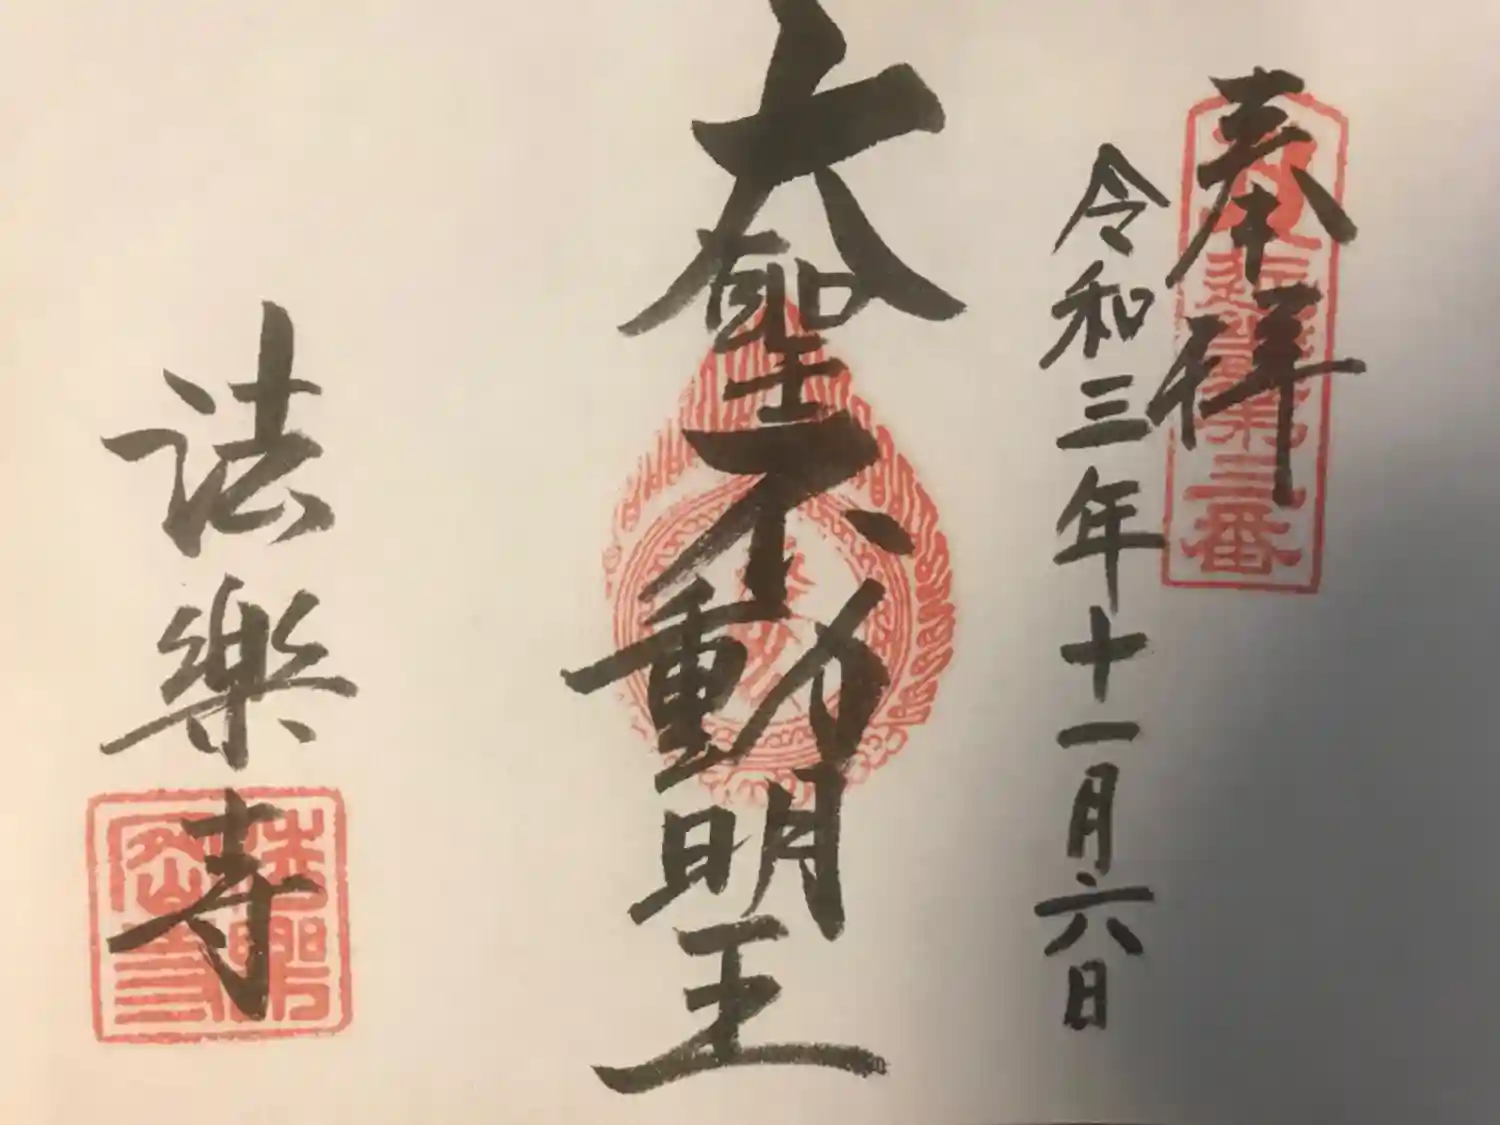 奉拝
令和三年十一月六日
大聖不動明王
法樂寺